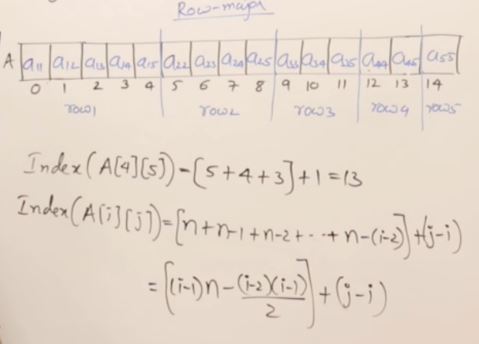 Row-major
A a11 a12 a13 a14 a15 a22 a23 a24 a25 a33 a34 a35 a44 a45 a55
0 1 2 3 4 5 6 7 8 9 10 11 12 13 14
row1 row2 row3 row4 row5
Index(A[4][5])=[5+4+3]+1=13
Index(A[i][j])=[n+n-1+n-2+--+n-(i-2)]+(j-i)
=[(i-1)n-(i-2)(i-1)/2]+(j-i)